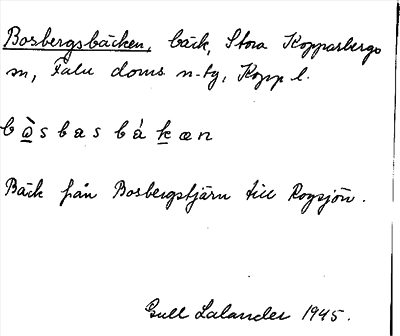 Bosbergsbäcken, bäck, Stora Kopparbergs
sn, Falu doms n-tg, Kopp l.
bòsbasbákæn
Bäck från Bosbergstjärn till Rogsjön.
Gull Lalander 1945.